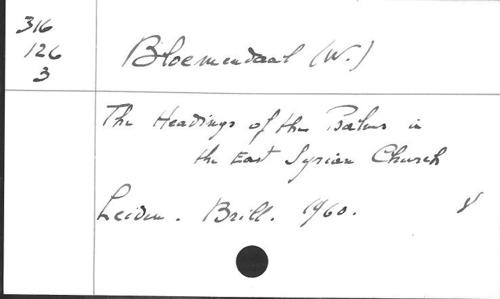 316
126
3
Bloemendaal (W.)
The Headings of the Psalms in
the East Syrian Church
Leiden. Brill. 1960. 8